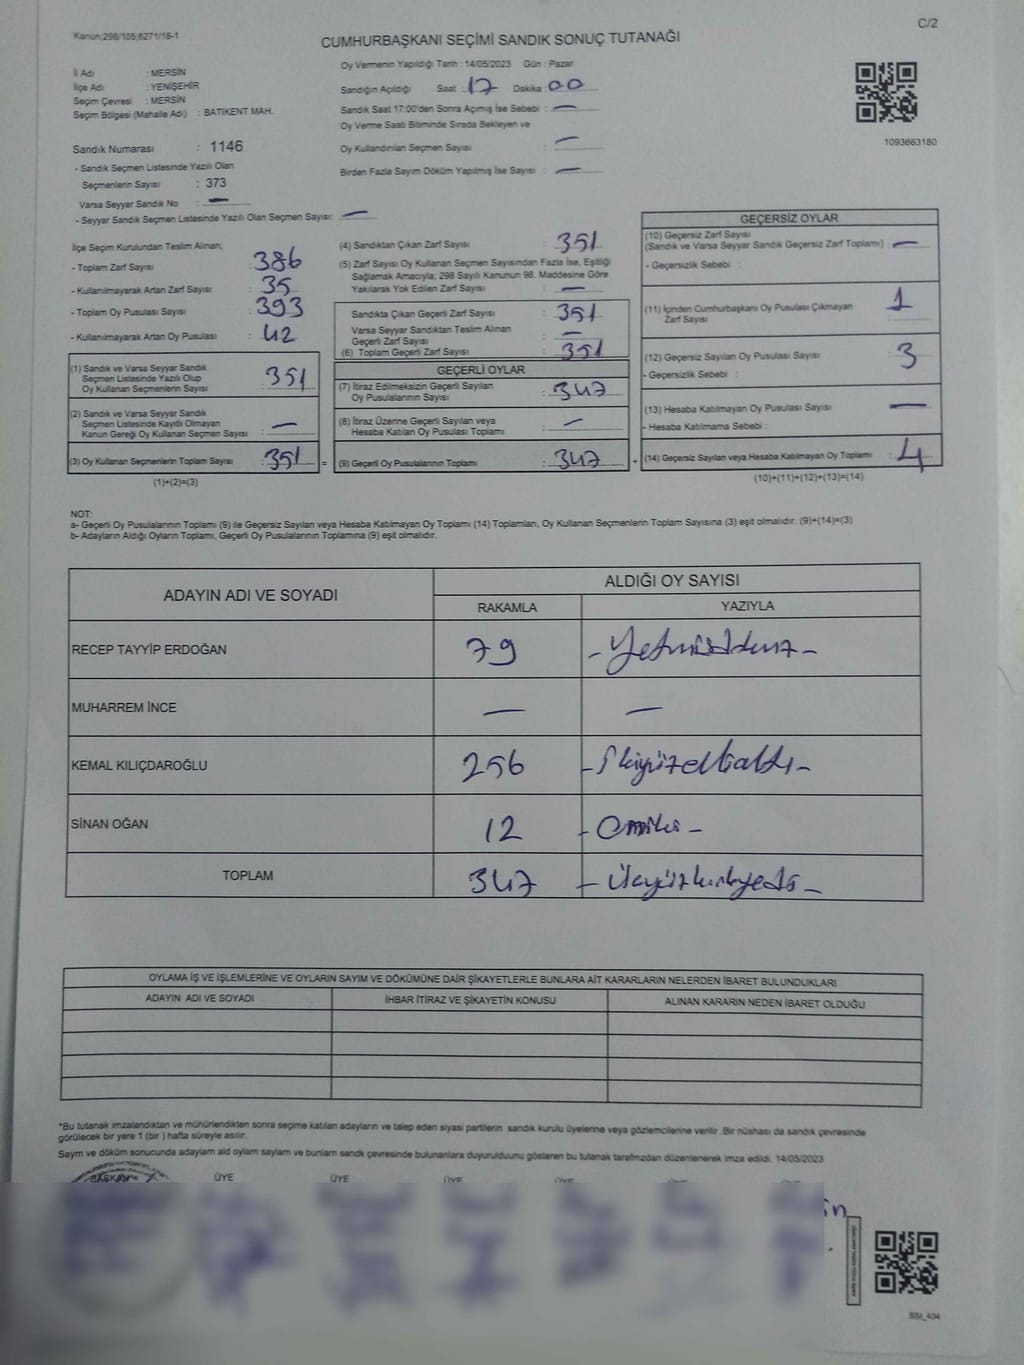 Kanun:298/105;6271/16-1
C/2
CUMHURBAŞKANI SEÇİMİ SANDIK SONUÇ TUTANAĞI
İl Adı : MERSİN
İlçe Adı : YENİŞEHİR
Seçim Çevresi : MERSİN
Seçim Bölgesi (Mahalle Adı) : BATIKENT MAH.
Sandık Numarası : 1146
- Sandık Seçmen Listesinde Yazılı Olan
Seçmenlerin Sayısı : 373
Varsa Seyyar Sandık No : —
- Seyyar Sandık Seçmen Listesinde Yazılı Olan Seçmen Sayısı: —
Oy Vermenin Yapıldığı Tarih : 14/05/2023 Gün : Pazar
Sandığın Açıldığı Saat : 17 Dakika : 00
Sandık Saat 17:00'den Sonra Açımış İse Sebebi : —
Oy Verme Saati Bitiminde Sırada Bekleyen ve
Oy Kullandırılan Seçmen Sayısı : —
Birden Fazla Sayım Döküm Yapılmış İse Sayısı : —
1093663180
İlçe Seçim Kurulundan Teslim Alınan;
- Toplam Zarf Sayısı : 386
- Kullanılmayarak Artan Zarf Sayısı : 35
- Toplam Oy Pusulası Sayısı : 393
- Kullanılmayarak Artan Oy Pusulası : 42
(1) Sandık ve Varsa Seyyar Sandık
Seçmen Listesinde Yazılı Olup
Oy Kullanan Seçmenlerin Sayısı : 351
(2) Sandık ve Varsa Seyyar Sandık
Seçmen Listesinde Kayıtlı Olmayan
Kanun Gereği Oy Kullanan Seçmen Sayısı : —
(3) Oy Kullanan Seçmenlerin Toplam Sayısı : 351
(1)+(2)=(3)
(4) Sandıktan Çıkan Zarf Sayısı : 351
(5) Zarf Sayısı Oy Kullanan Seçmen Sayısından Fazla İse, Eşitliği
Sağlamak Amacıyla; 298 Sayılı Kanunun 98. Maddesine Göre
Yakılarak Yok Edilen Zarf Sayısı : —
Sandıkta Çıkan Geçerli Zarf Sayısı : 351
Varsa Seyyar Sandıktan Teslim Alınan
Geçerli Zarf Sayısı : —
(6) Toplam Geçerli Zarf Sayısı : 351
GEÇERLİ OYLAR
(7) İtiraz Edilmeksizin Geçerli Sayılan
Oy Pusulalarının Sayısı : 347
(8) İtiraz Üzerine Geçerli Sayılan veya
Hesaba Katılan Oy Pusulası Toplamı : —
= (9) Geçerli Oy Pusulalarının Toplamı : 347 +
GEÇERSİZ OYLAR
(10) Geçersiz Zarf Sayısı
(Sandık ve Varsa Seyyar Sandık Geçersiz Zarf Toplamı) : —
- Geçersizlik Sebebi :
(11) İçinden Cumhurbaşkanı Oy Pusulası Çıkmayan
Zarf Sayısı : 1
(12) Geçersiz Sayılan Oy Pusulası Sayısı : 3
- Geçersizlik Sebebi :
(13) Hesaba Katılmayan Oy Pusulası Sayısı : —
- Hesaba Katılmama Sebebi :
(14) Geçersiz Sayılan veya Hesaba Katılmayan Oy Toplamı : 4
(10)+(11)+(12)+(13)=(14)
NOT:
a- Geçerli Oy Pusulalarının Toplamı (9) ile Geçersiz Sayılan veya Hesaba Katılmayan Oy Toplamı (14) Toplamları, Oy Kullanan Seçmenlerin Toplam Sayısına (3) eşit olmalıdır. (9)+(14)=(3)
b- Adayların Aldığı Oyların Toplamı, Geçerli Oy Pusulalarının Toplamına (9) eşit olmalıdır.
ADAYIN ADI VE SOYADI
ALDIĞI OY SAYISI
RAKAMLA YAZIYLA
RECEP TAYYİP ERDOĞAN 79 - Yetmişdokuz -
MUHARREM İNCE — —
KEMAL KILIÇDAROĞLU 256 - İkiyüzellialtı -
SİNAN OĞAN 12 - Oniki -
TOPLAM 347 - Üçyüzkırkyedi -
OYLAMA İŞ VE İŞLEMLERİNE VE OYLARIN SAYIM VE DÖKÜMÜNE DAİR ŞİKAYETLERLE BUNLARA AİT KARARLARIN NELERDEN İBARET BULUNDUKLARI
ADAYIN ADI VE SOYADI İHBAR İTİRAZ VE ŞİKAYETİN KONUSU ALINAN KARARIN NEDEN İBARET OLDUĞU
*Bu tutanak imzalandıktan ve mühürlendikten sonra seçime katılan adayların ve talep eden siyasi partilerin sandık kurulu üyelerine veya gözlemcilerine verilir .Bir nüshası da sandık çevresinde
görülecek bir yere 1 (bir ) hafta süreyle asılır.
Sayım ve döküm sonucunda adayların ald oyların sayıları ve bunların sandk çevresinde bulunanlara duyurulduunu gösteren bu tutanak tarafmzdan düzenlenerek imza edildi. 14/05/2023
BAŞKAN ÜYE ÜYE ÜYE ÜYE
SSI_404